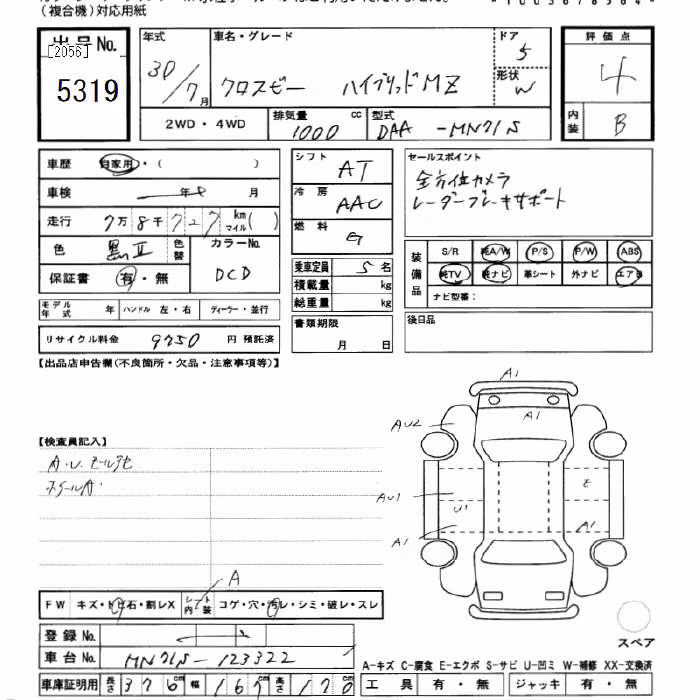 (複合機)対応用紙
出品No.
[2056]
5319
年式 30/7月
車名・グレード クロスビー ハイブリッドMZ
ドア 5
形状 W
評価点 4
内装 B
2WD・4WD
排気量 1000 cc
型式 DAA-MN71S
車歴 自家用・( )
車検 年 月
走行 7万8千727 km マイル( )
色 黒Ⅱ 色替
カラーNo. DCD
保証書 有・無
モデル年式 年 ハンドル 左・右 ディーラー・並行
リサイクル料金 9750 円 預託済
シフト AT
冷房 AAC
燃料 G
乗車定員 5名
積載量 kg
総重量 kg
書類期限 月 日
セールスポイント
全方位カメラ
レーダーブレーキサポート
装備品
S/R 純A/W P/S P/W ABS
純TV 純ナビ 革シート 外ナビ エアB
ナビ型番:
後日品
【出品店申告欄(不良箇所・欠品・注意事項等)】
【検査員記入】
A.U.
A1
A1
AU2
AU1
U1
E
A1
A1
A
FW キズ・トビ石・割レX シート内装 コゲ・穴・汚レ・シミ・破レ・スレ
登録No.
車台No. MN71S-123322
車庫証明用 長さ 376cm 幅 167cm 高さ 170cm
スペア
A-キズ C-腐食 E-エクボ S-サビ U-凹ミ W-補修 XX-交換済
工具 有・無 ジャッキ 有・無